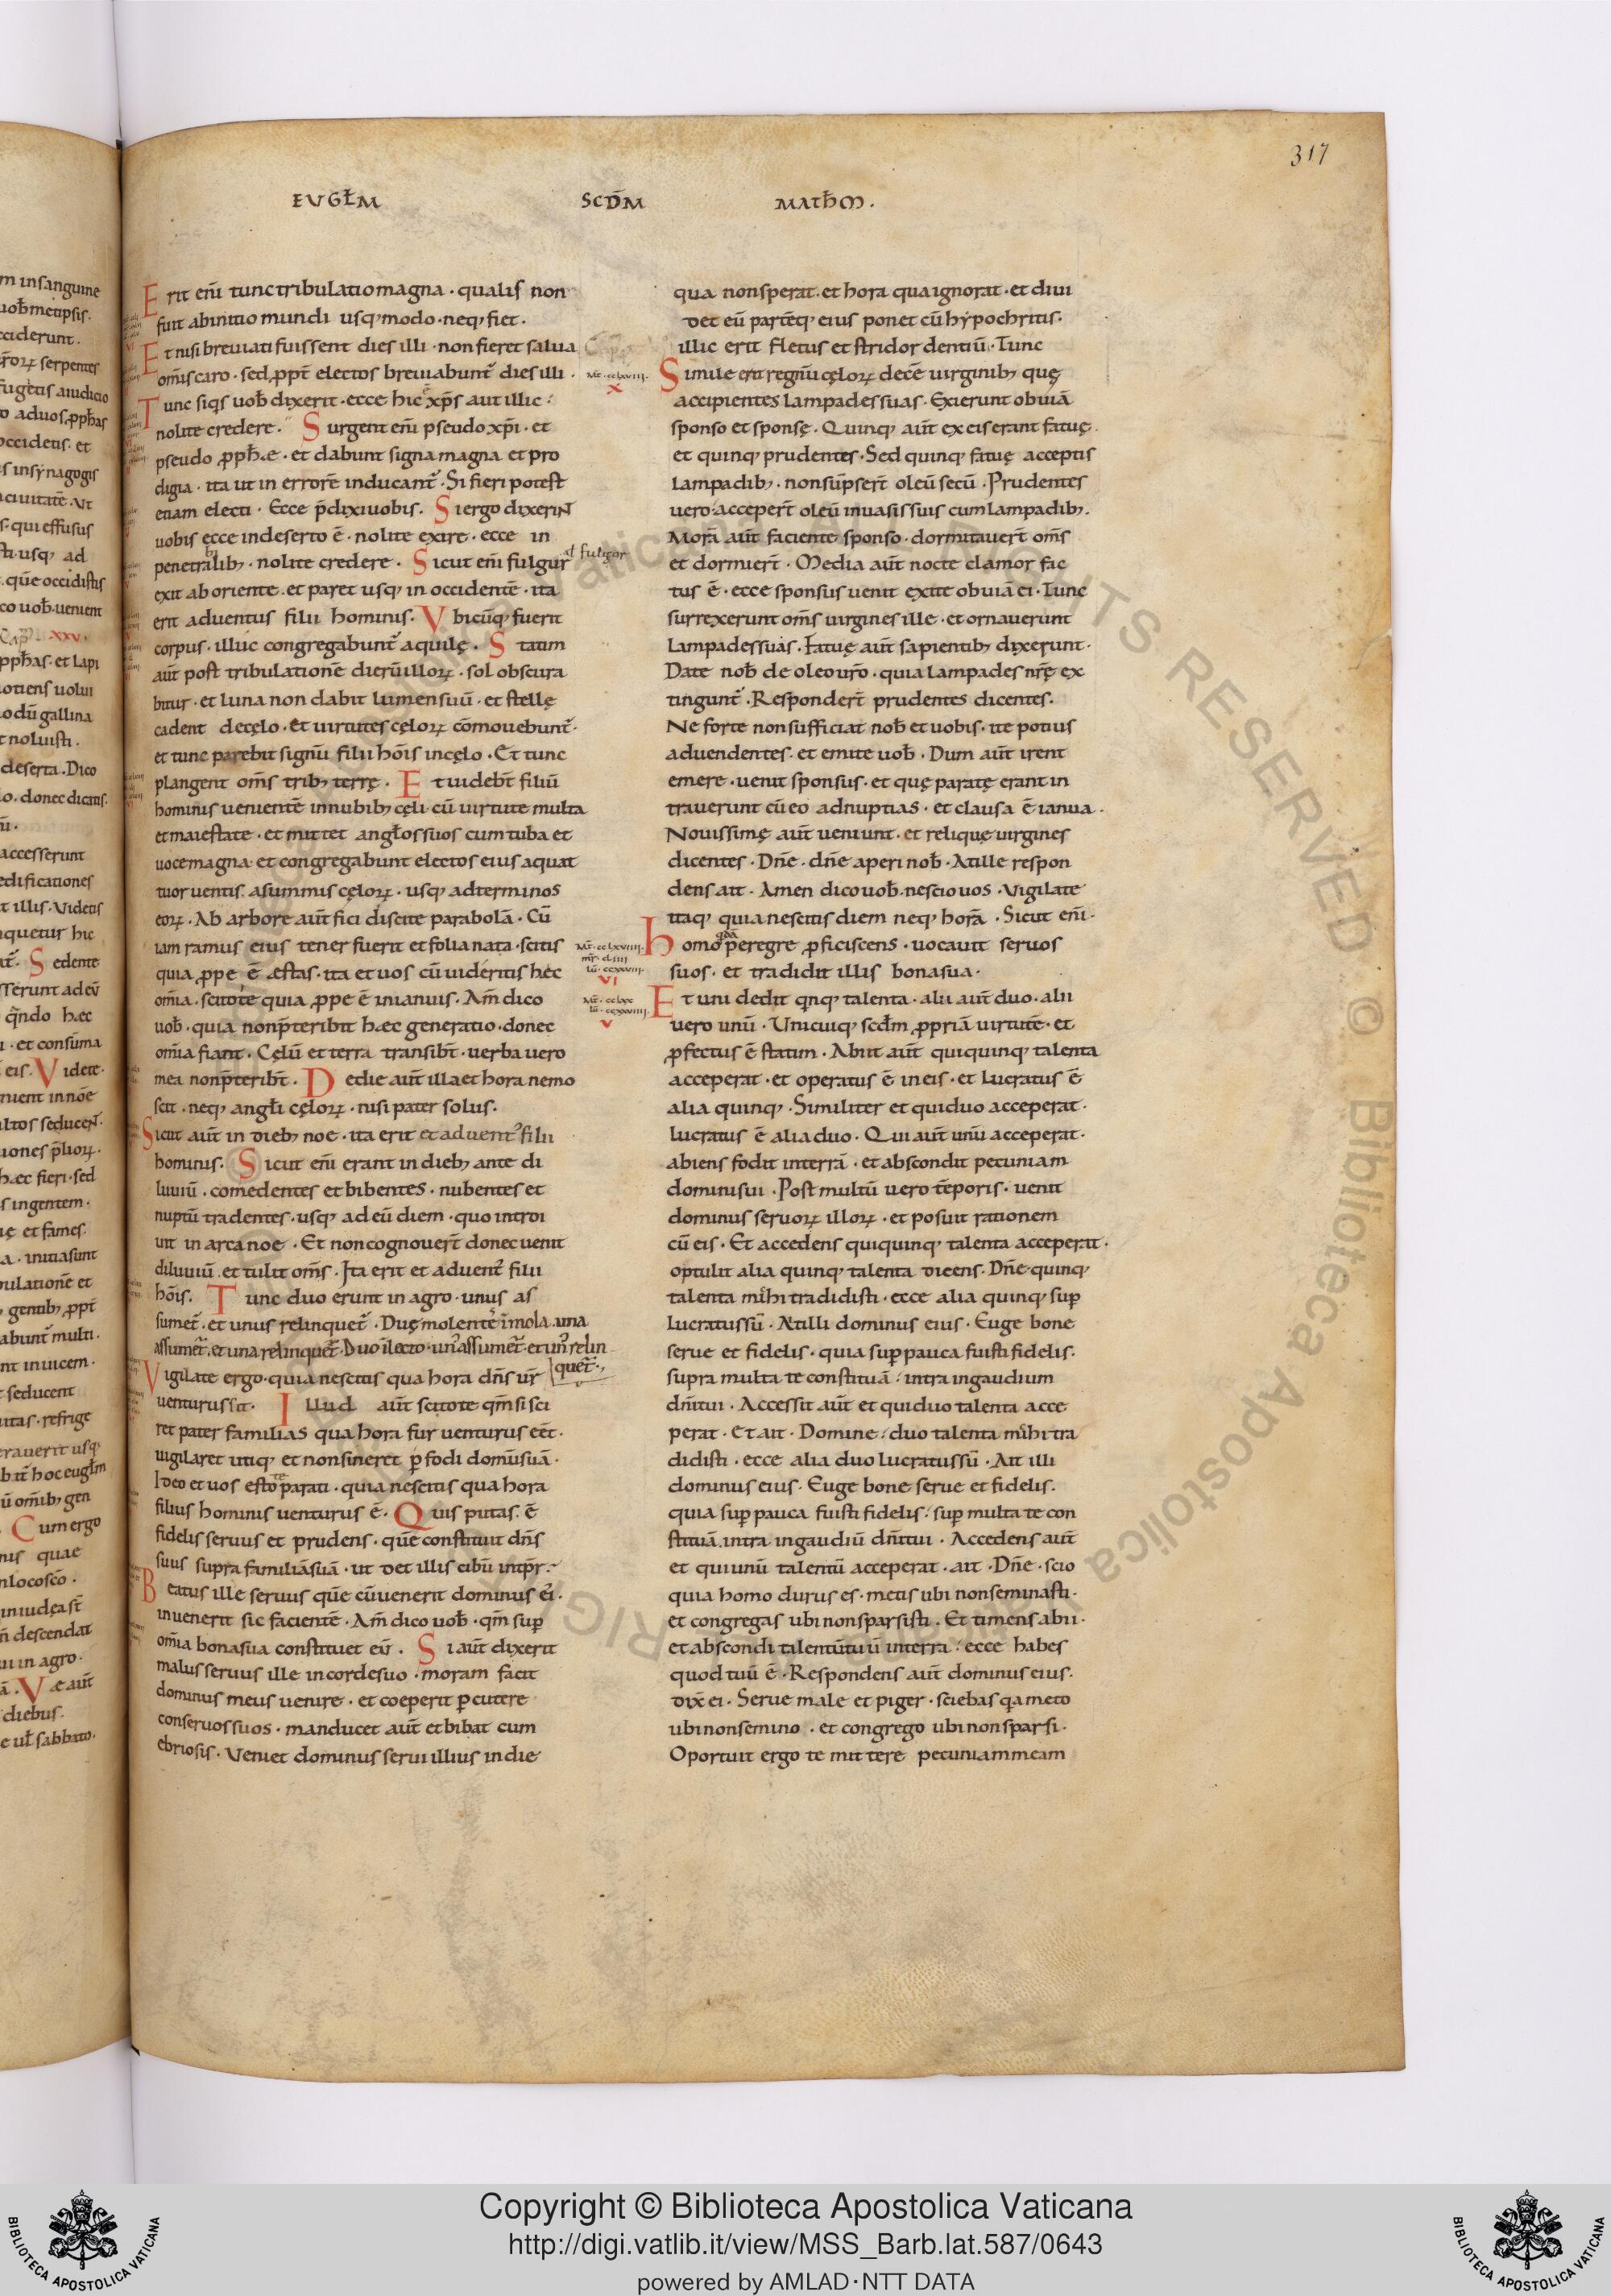 317
EVGL̄M SCD̄M MATH̄M.
Erit eni̅ tunc tribulatio magna · qualis non
fuit ab initio mundi usq; modo · neq; fiet.
Et nisi breuiati fuissent dies illi · non fieret salua
om̅is caro · sed ꝓpt̅ electos breuiabunt̅ dies illi.
Tunc siq̅s uob̅ dixerit · ecce hic xp̅s aut illic:
nolite credere. Surgent eni̅ pseudo xp̅i · et
pseudo ꝓph̅æ · et dabunt signa magna et pro
digia · ita ut in errore̅ inducant̅ · Si fieri potest
etiam electi · Ecce p̅dixi uobis. Si ergo dixerint
uobis ecce in deserto e̅ · nolite exire · ecce in
penetralib; · nolite credere. Sicut eni̅ fulgur
ł fulgor
exit ab oriente · et paret usq; in occidente̅ · ita
erit aduentus filii hominis. Vbicu̅q; fuerit
corpus · illuc congregabunt̅ aquilę. Statim
aut̅ post tribulatione̅ dieru̅ illoꝝ · sol obscura
bitur · et luna non dabit lumen suu̅ · et stellę
cadent de cęlo · et uirtutes cęloꝝ co̅mouebunt̅ ·
et tunc parebit signu̅ filii ho̅is in cęlo · Et tunc
plangent om̅s trib; terrę. Et uidebt̅ filiu̅
hominis ueniente̅ in nubib; cęli cu̅ uirtute multa
et maiestate · et mittet angl̅os suos cum tuba et
uoce magna et congregabunt electos eius a quat
tuor uentis a summis cęloꝝ · usq; ad terminos
eoꝝ · Ab arbore aut̅ fici discite parabola̅ · Cu̅
iam ramus eius tener fuerit et folia nata · scitis
quia ꝓpe e̅ æstas · ita et uos cu̅ uideritis hęc
om̅ia · scitote quia ꝓpe e̅ in ianuis · Am̅ dico
uob̅ · quia non p̅teribit hæc generatio · donec
om̅ia fiant · Cęlu̅ et terra transibt̅ · uerba uero
mea non p̅teribt̅. De die aut̅ illa et hora nemo
scit · neq; angl̅i cęloꝝ · nisi pater solus.
Sicut aut̅ in dieb; noe · ita erit et aduent᾿ filii
hominis. Sicut eni̅ erant in dieb; ante di
luuiu̅ · comedentes et bibentes · nubentes et
nuptu̅ tradentes · usq; ad eu̅ diem · quo introi
uit in arca noe · Et non cognouert̅ donec uenit
diluuiu̅ · et tulit om̅s · Ita erit et aduent᾿ filii
ho̅is. Tunc duo erunt in agro · unus as
sumet̅ · et unus relinquet̅ · Duę molentes i̅ mola · una
assumet̅ · et una relinquet̅ · Duo i̅ lecto · un᾿ assumet̅ · et un᾿ relin
quet̅.
Vigilate ergo · quia nescitis qua hora dn̅s ur̅
uenturus sit. Illud aut̅ scitote qm̅ si sci
ret pater familias qua hora fur uenturus eet̅ ·
uigilaret utiq; et non sineret ꝑfodi domu̅ sua̅ ·
Ideo et uos estote parati · quia nescitis qua hora
filius hominis uenturus e̅. Quis putas · e̅
fidelis seruus et prudens · que̅ constituit dn̅s
suus supra familia̅ sua̅ · ut det illis cibu̅ in tp̅r.
Beatus ille seruus que̅ cu̅ uenerit dominus ei᾿ ·
inuenerit sic faciente̅ · Am̅ dico uob̅ · qm̅ sup̅
om̅ia bona sua constituet eu̅. Si aut̅ dixerit
malus seruus ille in corde suo · moram facit
dominus meus uenire · et coeperit ꝑcutere
conseruos suos · manducet aut̅ et bibat cum
ebriosis · Veniet dominus serui illius in die
qua non sperat · et hora qua ignorat · et diui
det eu̅ parte̅q; eius ponet cu̅ hypochritis.
illic erit fletus et stridor dentiu̅ · Tunc
Simile erit regnu̅ cęloꝝ dece̅ uirginib; quę
accipientes lampades suas · Exierunt obuia̅
sponso et sponsę · Quinq; aut̅ ex eis erant fatuę.
et quinq; prudentes · Sed quinq; fatuę acceptis
lampadib; · non su̅psert̅ oleu̅ secu̅ · Prudentes
uero accepert̅ oleu̅ in uasis suis cum lampadib;.
Mora̅ aut̅ faciente sponso · dormitauert̅ om̅s
et dormiert̅ · Media aut̅ nocte clamor fac
tus e̅ · ecce sponsus uenit exite obuia̅ ei · Tunc
surrexerunt om̅s uirgines ille · et ornauerunt
lampades suas · Fatuę aut̅ sapientib; dixerunt ·
Date nob̅ de oleo ur̅o · quia lampades nr̅ę ex
tingunt̅ · Respondert̅ prudentes dicentes.
Ne forte non sufficiat nob̅ et uobis · ite potius
ad uendentes · et emite uob̅ · Dum aut̅ irent
emere · uenit sponsus · et quę paratę erant in
trauerunt cu̅ eo ad nuptias · et clausa e̅ ianua ·
Nouissimę aut̅ ueniunt · et reliquę uirgines
dicentes · Dn̅e · dn̅e aperi nob̅ · At ille respon
dens ait · Amen dico uob̅ · nescio uos · Vigilate
itaq; quia nescitis diem neq; hora̅ · Sicut eni̅ ·
homo qda̅ peregre ꝓficiscens · uocauit seruos
suos · et tradidit illis bona sua ·
Et uni dedit qnq; talenta · alii aut̅ duo · alii
uero unu̅ · Unicuiq; scd̅m ꝓpria̅ uirtute̅ · et
ꝓfectus e̅ statim · Abiit aut̅ qui quinq; talenta
acceperat · et operatus e̅ in eis · et lucratus e̅
alia quinq; · Similiter et qui duo acceperat ·
lucratus e̅ alia duo · Qui aut̅ unu̅ acceperat ·
abiens fodit in terra̅ · et abscondit pecuniam
domini sui · Post multu̅ uero te̅poris · uenit
dominus seruoꝝ illoꝝ · et posuit rationem
cu̅ eis · Et accedens qui quinq; talenta acceperat ·
optulit alia quinq; talenta dicens · Dn̅e · quinq;
talenta mihi tradidisti · ecce alia quinq; sup̅
lucratus su̅ · At illi dominus eius · Euge bone
serue et fidelis · quia sup̅ pauca fuisti fidelis.
supra multa te constitua̅ : intra in gaudium
dn̅i tui · Accessit aut̅ et qui duo talenta acce
perat · Et ait · Domine : duo talenta mihi tra
didisti · ecce alia duo lucratus su̅ · Ait illi
dominus eius · Euge bone serue et fidelis.
quia sup̅ pauca fuisti fidelis : sup̅ multa te con
stitua̅ · intra in gaudiu̅ dn̅i tui · Accedens aut̅
et qui unu̅ talentu̅ acceperat · ait · Dn̅e · scio
quia homo durus es · metis ubi non seminasti ·
et congregas ubi non sparsisti · Et timens abii ·
et abscondi talentu̅ tuu̅ in terra : ecce habes
quod tuu̅ e̅ · Respondens aut̅ dominus eius.
dix̅ ei · Serue male et piger · sciebas q̅a meto
ubi non semino · et congrego ubi non sparsi ·
Oportuit ergo te mittere pecuniam meam
Copyright © Biblioteca Apostolica Vaticana
http://digi.vatlib.it/view/MSS_Barb.lat.587/0643
powered by AMLAD·NTT DATA